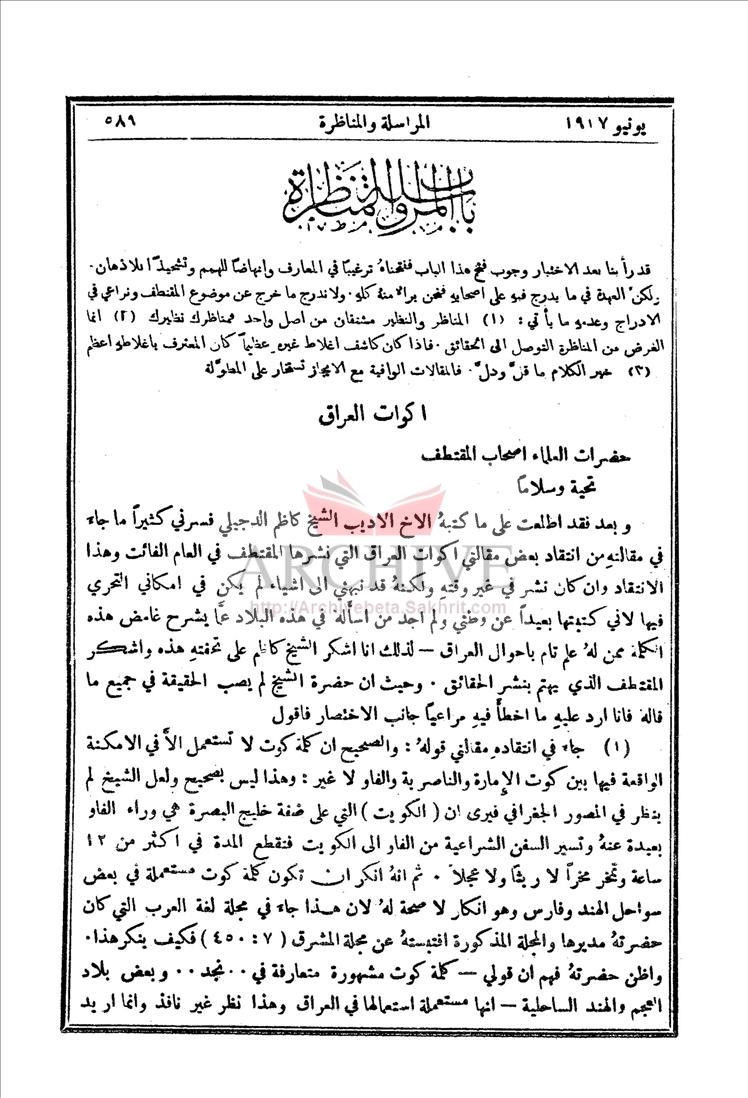 يونيو ١٩١٧ المراسلة والمناظرة ٥٨٩
باب المراسلة والمناظرة
قد رأينا بعد الاختبار وجوب فتح هذا الباب ففتحناهُ ترغيبًا في المعارف وانهاضًا للهمم وتشحيذًا للاذهان .
ولكنَّ العهدة في ما يدرج فيه على اصحابه فنحن برالا منهُ كلهِ . ولا ندرج ما خرج عن موضوع المقتطف ونراعي في
الادراج وعدمهِ ما يأتي : (١) المناظر والنظير مشتقان من اصل واحد فمناظرك نظيرك (٢) انما
الغرض من المناظرة التوصل الى الحقائق . فاذا كان كاشف اغلاط غيرهِ عظيمًا كان المعترف باغلاطهِ اعظم
(٣) خير الكلام ما قلَّ ودلَّ . فالمقالات الوافية مع الايجاز تستخار على المطوَّلة
اكوات العراق
حضرات العلماء اصحاب المقتطف
تحية وسلامًا
و بعد فقد اطلعت على ما كتبهُ الاخ الاديب الشيخ كاظم الدجيلي فسرني كثيرًا ما جاء
في مقالتهِ من انتقاد بعض مقالتي اكوات العراق التي نشرها المقتطف في العام الفائت وهذا
الانتقاد وان كان نشر في غير وقتهِ ولكنهُ قد نبهني الى اشياء لم يكن في امكاني التحري
فيها لاني كتبتها بعيدًا عن وطني ولم اجد من اسألهُ في هذه البلاد عمَّا يشرح غامض هذه
الكلمة ممن لهُ علم تام باحوال العراق — لذلك انا اشكر الشيخ كاظم على تحفتهِ هذه واشكر
المقتطف الذي يهتم بنشر الحقائق . وحيث ان حضرة الشيخ لم يصب الحقيقة في جميع ما
قالهُ فانا ارد عليهِ ما اخطأ فيهِ مراعيًا جانب الاختصار فاقول
(١) جاء في انتقادهِ مقالتي قولهُ : والصحيح ان كلمة كوت لا تستعمل الاَّ في الامكنة
الواقعة فيها بين كوت الإمارة والناصرية والفاو لا غير : وهذا ليس بصحيح ولعل الشيخ لم
ينظر في المصور الجغرافي فيرى ان ( الكويت ) التي على ضفة خليج البصرة هي وراء الفاو
بعيدة عنهُ وتسير السفن الشراعية من الفاو الى الكويت فتقطع المدة في اكثر من ١٢
ساعة وتمخر مخرًا لا ريثًا ولا عجلاً . ثم انهُ انكر ان تكون كلمة كوت مستعملة في بعض
سواحل الهند وفارس وهو انكار لا صحة لهُ لان هذا جاء في مجلة لغة العرب التي كان
حضرتهُ مديرها والمجلة المذكورة اقتبستهُ عن مجلة المشرق ( ٧ : ٤٥٠ ) فكيف ينكر هذا .
واظن حضرتهُ فهم ان قولي — كلمة كوت مشهورة متعارفة في . . نجد . . وبعض بلاد
العجم والهند الساحلية — انها مستعملة استعمالها في العراق وهذا نظر غير نافذ وانما اريد
ARCHIVE
http://Archivebeta.Sakhrit.com